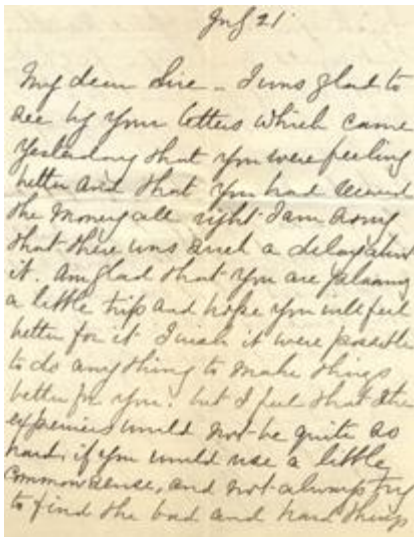 July 21
My dear Sire - I was glad to
see by your letters which came
Yesterday that you were feeling
better and that you had received
the money all right I am sorry
that there was such a delay about
it. Am glad that you are planning
a little trip and hope you will feel
better for it I wish it were possible
to do anything to make things
better for you. but I feel that the
experiences would not be quite so
hard, if you would use a little
common sense, and not always try
to find the bad and hard things